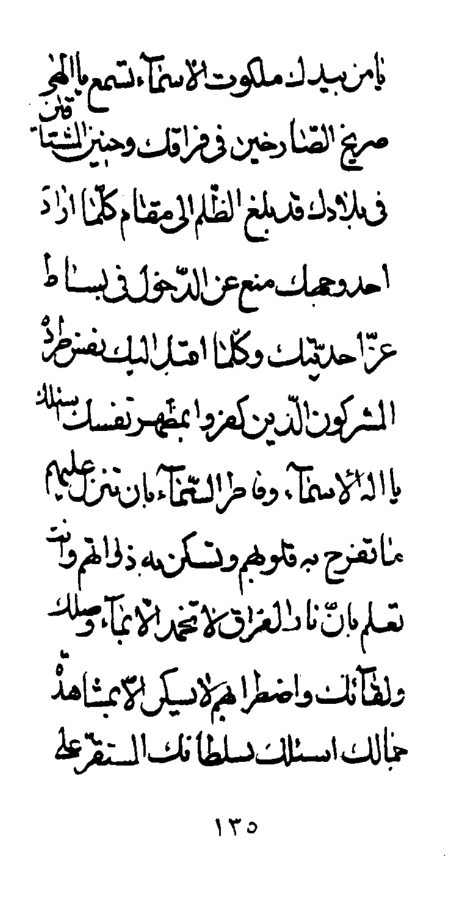 يا من بيدك ملكوت الاسمآء تسمع يا الهى
صريخ الصّارخين فى فراقك وحنين المشتاقين
فى بلادك قد بلغ الظّلم الى مقام كلّما اراد
احد وجهك منع عن الدّخول فى بساط
عزّ احديّتك وكلّما اقبل اليك نفس طرده
المشركون الّذين كفروا بمظهر نفسك اسئلك
يا اله الاسمآء وفاطر السّمآء بان تنزل عليهم
ما تفرح به قلوبهم وتسكن به ذواتهم وانت
تعلم بانّ نار الفراق لا تخمد الّا بمآء وصلك
ولقآئك واضطرابهم لا يسكن الّا بمشاهدة
جمالك اسئلك بسلطانك المستقرّ على
١٣٥